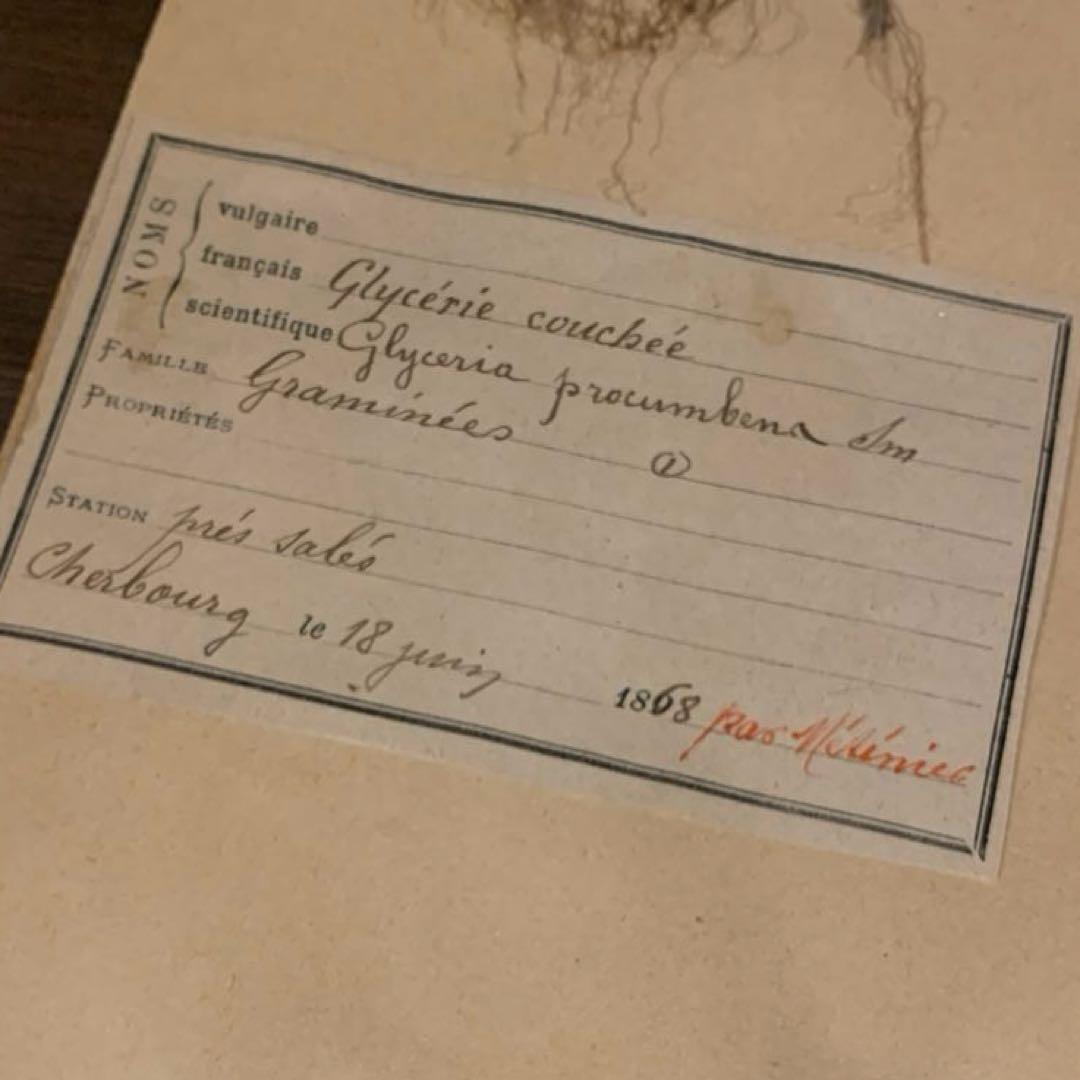 NOMS
vulgaire
français Glycérie couchée
scientifique Glyceria procumbens Sm
FAMILLE Graminées
PROPRIÉTÉS ①
STATION prés salés
Cherbourg le 18 juin 1868 par